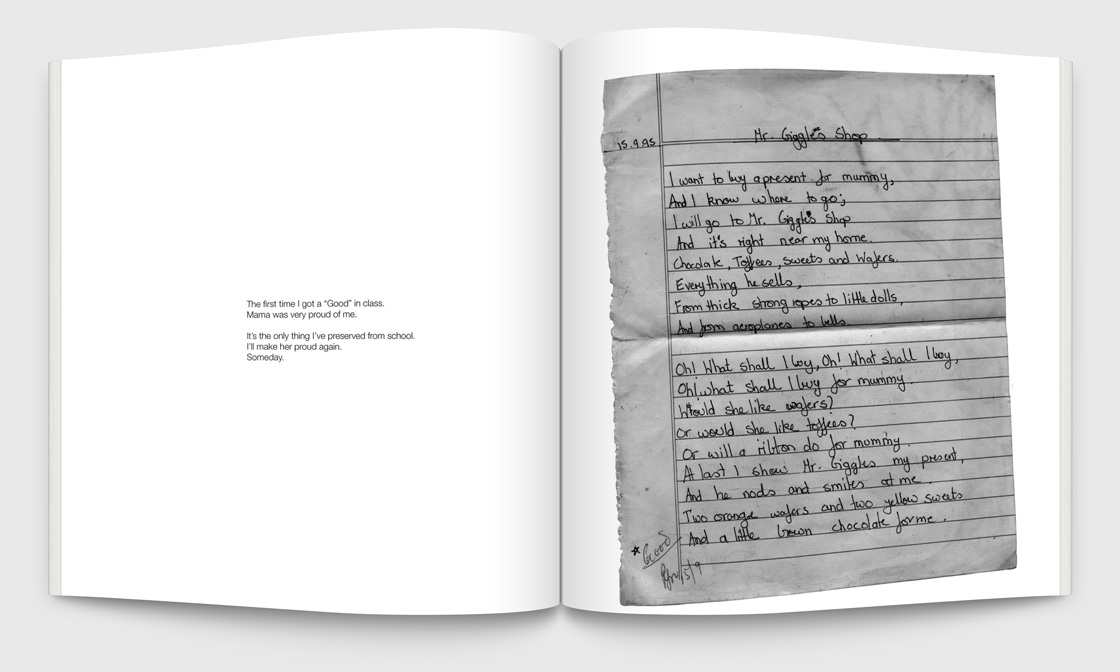 The first time I got a “Good” in class.
Mama was very proud of me.
It's the only thing I've preserved from school.
I'll make her proud again.
Someday.
Mr. Giggle's Shop
15.9.95
I want to buy a present for mummy,
And I know where to go;
I will go to Mr. Giggle's Shop
And it's right near my home.
Chocolate, Toffees, Sweets and Wafers.
Everything he sells,
From thick strong ropes to little dolls,
And from aeroplanes to bells.
Oh! What shall I buy, Oh! What shall I buy,
Oh! what shall I buy for mummy.
Would she like wafers?
Or would she like toffees?
Or will a ribbon do for mummy.
At last I show Mr. Giggles my present,
And he nods and smiles at me.
Two orange wafers and two yellow sweets
And a little brown chocolate for me.
Good
15/9